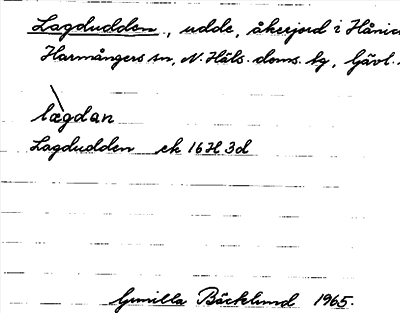 Lagdudden, udde, åkerjord i Hånick
Harmångers sn, N. Häls. doms. hg, Gävl.
lægdan
Lagdudden ek 16 H 3d
Gunilla Bäcklund 1965.